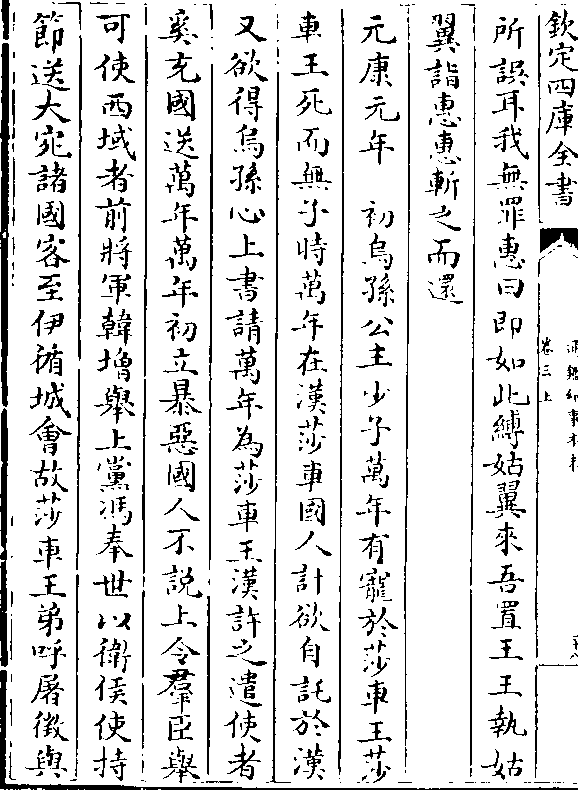 欽定四庫全書
卷三上
所誤耳我無罪惠曰即如此縛姑翼來吾置王王執姑
翼詣惠惠斬之而還
元康元年　初烏孫公主少子萬年有寵於莎車王莎
車王死而無子時萬年在漢莎車國人計欲自託於漢
又欲得烏孫心上書請萬年為莎車王漢許之遣使者
奚充國送萬年萬年初立暴惡國人不說上令羣臣舉
可使西域者前將軍韓增舉上黨馮奉世以衛侯使持
節送大宛諸國客至伊循城會故莎車王弟呼屠徵與